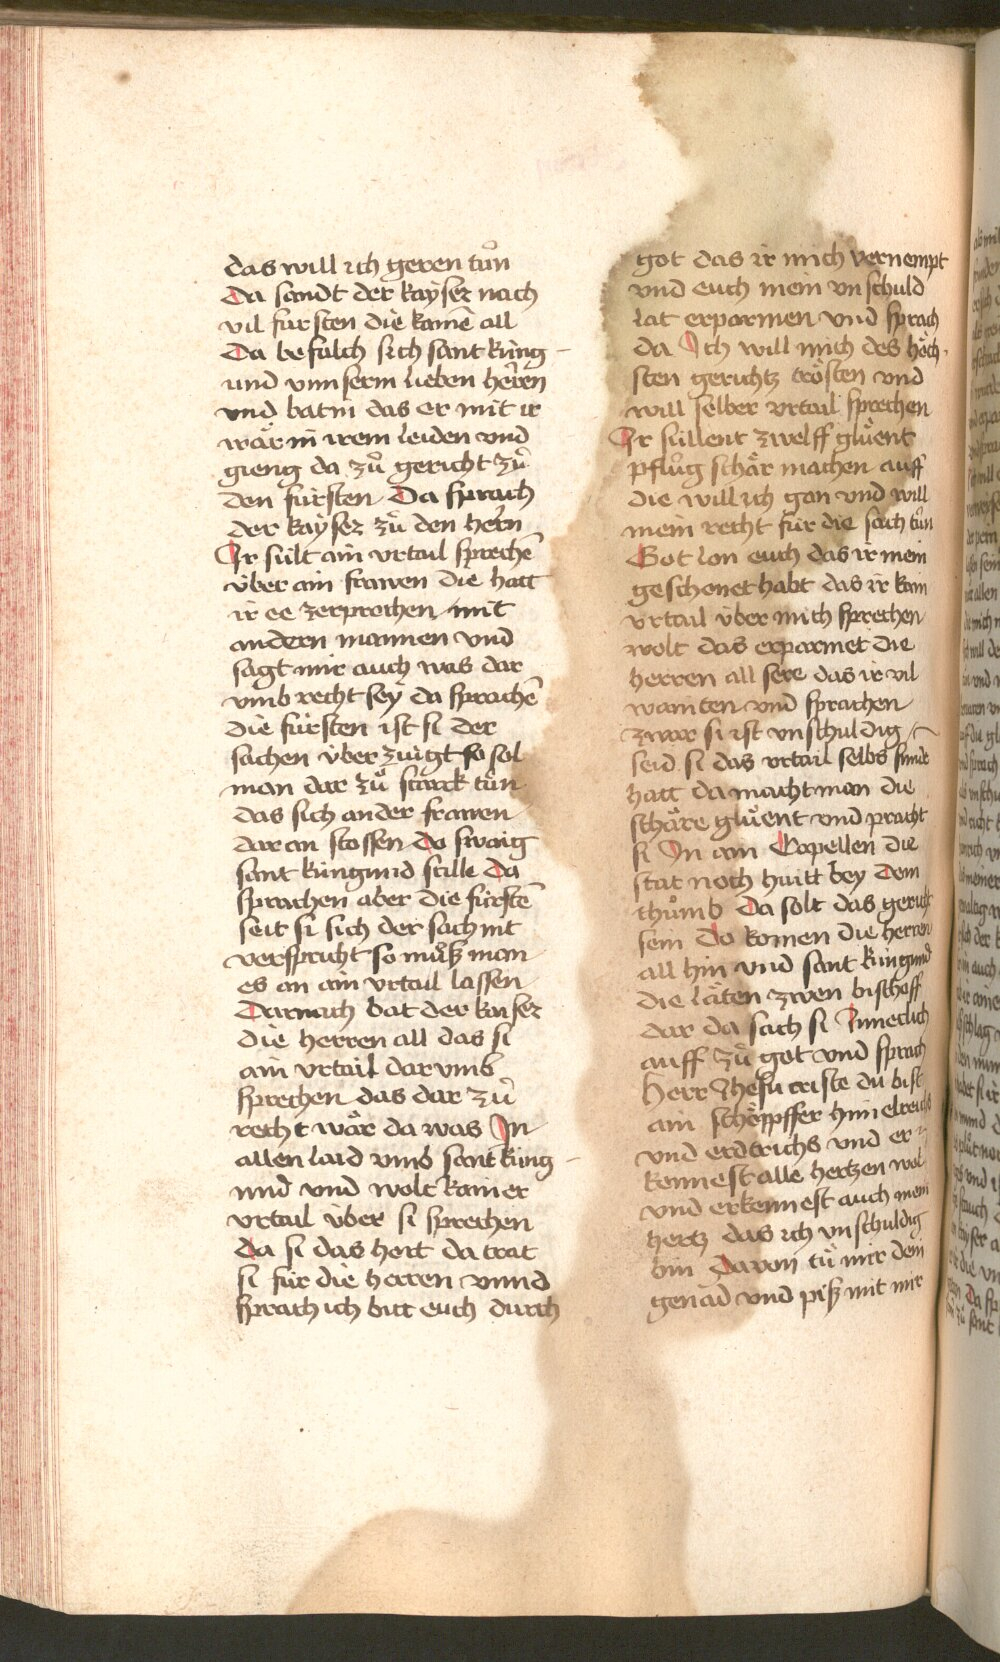 das will ich geren tůn
Da sandt der kayser nach
vil fürsten die kamē all
Da befalch sich sant küng-
und vnnserm lieben herren
vnd batin das er mit ir
wär in irem leiden vnd
gieng da zů gericht zů
den fürsten Da sprach
der kayser zů den hern
Ir sült ain vrtail sprechē
über ain frawen die hatt
ir ee zerprochen mit
andern mannen vnd
sagt mir auch was dar
vmb recht sey da sprachē
die fürsten ist si der
sachen über zuigt so sol
man dar zů starck tůn
das sich ander frawen
daran stossen Do swaig
sant küngund stille Da
sprachen aber die fürstē
seit si sich der sach nit
versspricht so můß man
es an ain vrtail lassen
Darnach bat der kaiser
die herren all das si
ain vrtail darvmb
sprechen das dar zů
recht wär da was In
allen laid vmb sant küng-
und vnd wolt kainer
vrtail über si sprechen
Da si das hort da trat
si für die herren vnnd
sprach ich bitt euch durch
got das ir mich vernempt
vnd euch mein vnschuld
lat erparmen vnd sprach
da Ich will mich des höch-
sten gerichtz trösten vnd
will selber vrtail sprechen
Ir süllent zwelff glüent
pflůg schär machen auff
die will ich gan vnd will
mein recht für die sach tůn
Got lon euch das ir mein
geschonet habt das ir kain
vrtail über mich sprechen
wolt das erparmet die
herren all sere das ir vil
wainten vnd sprachen
zwar si ist vnschuldig
seid si das vrtail selbs funde
hatt da macht man die
schäre glüent vnd pracht
si In ain Capellen die
stat noch huitt bey dem
thůmb Da solt das gericht
sein Do komen die herren
all hin vnd sant küngund
die läten zwen bischoff
dar da sach si Inneclich
auff zů got vnd sprach
Herr Jhesu criste du bist
ain schöpffer himelreichs
vnd erdtrichs vnd er-
kennest alle hertzen wol
vnd erkennest auch mein
hertz das ich vnschuldig
bin Davon tů mir dein
genad vnd piß mit mir